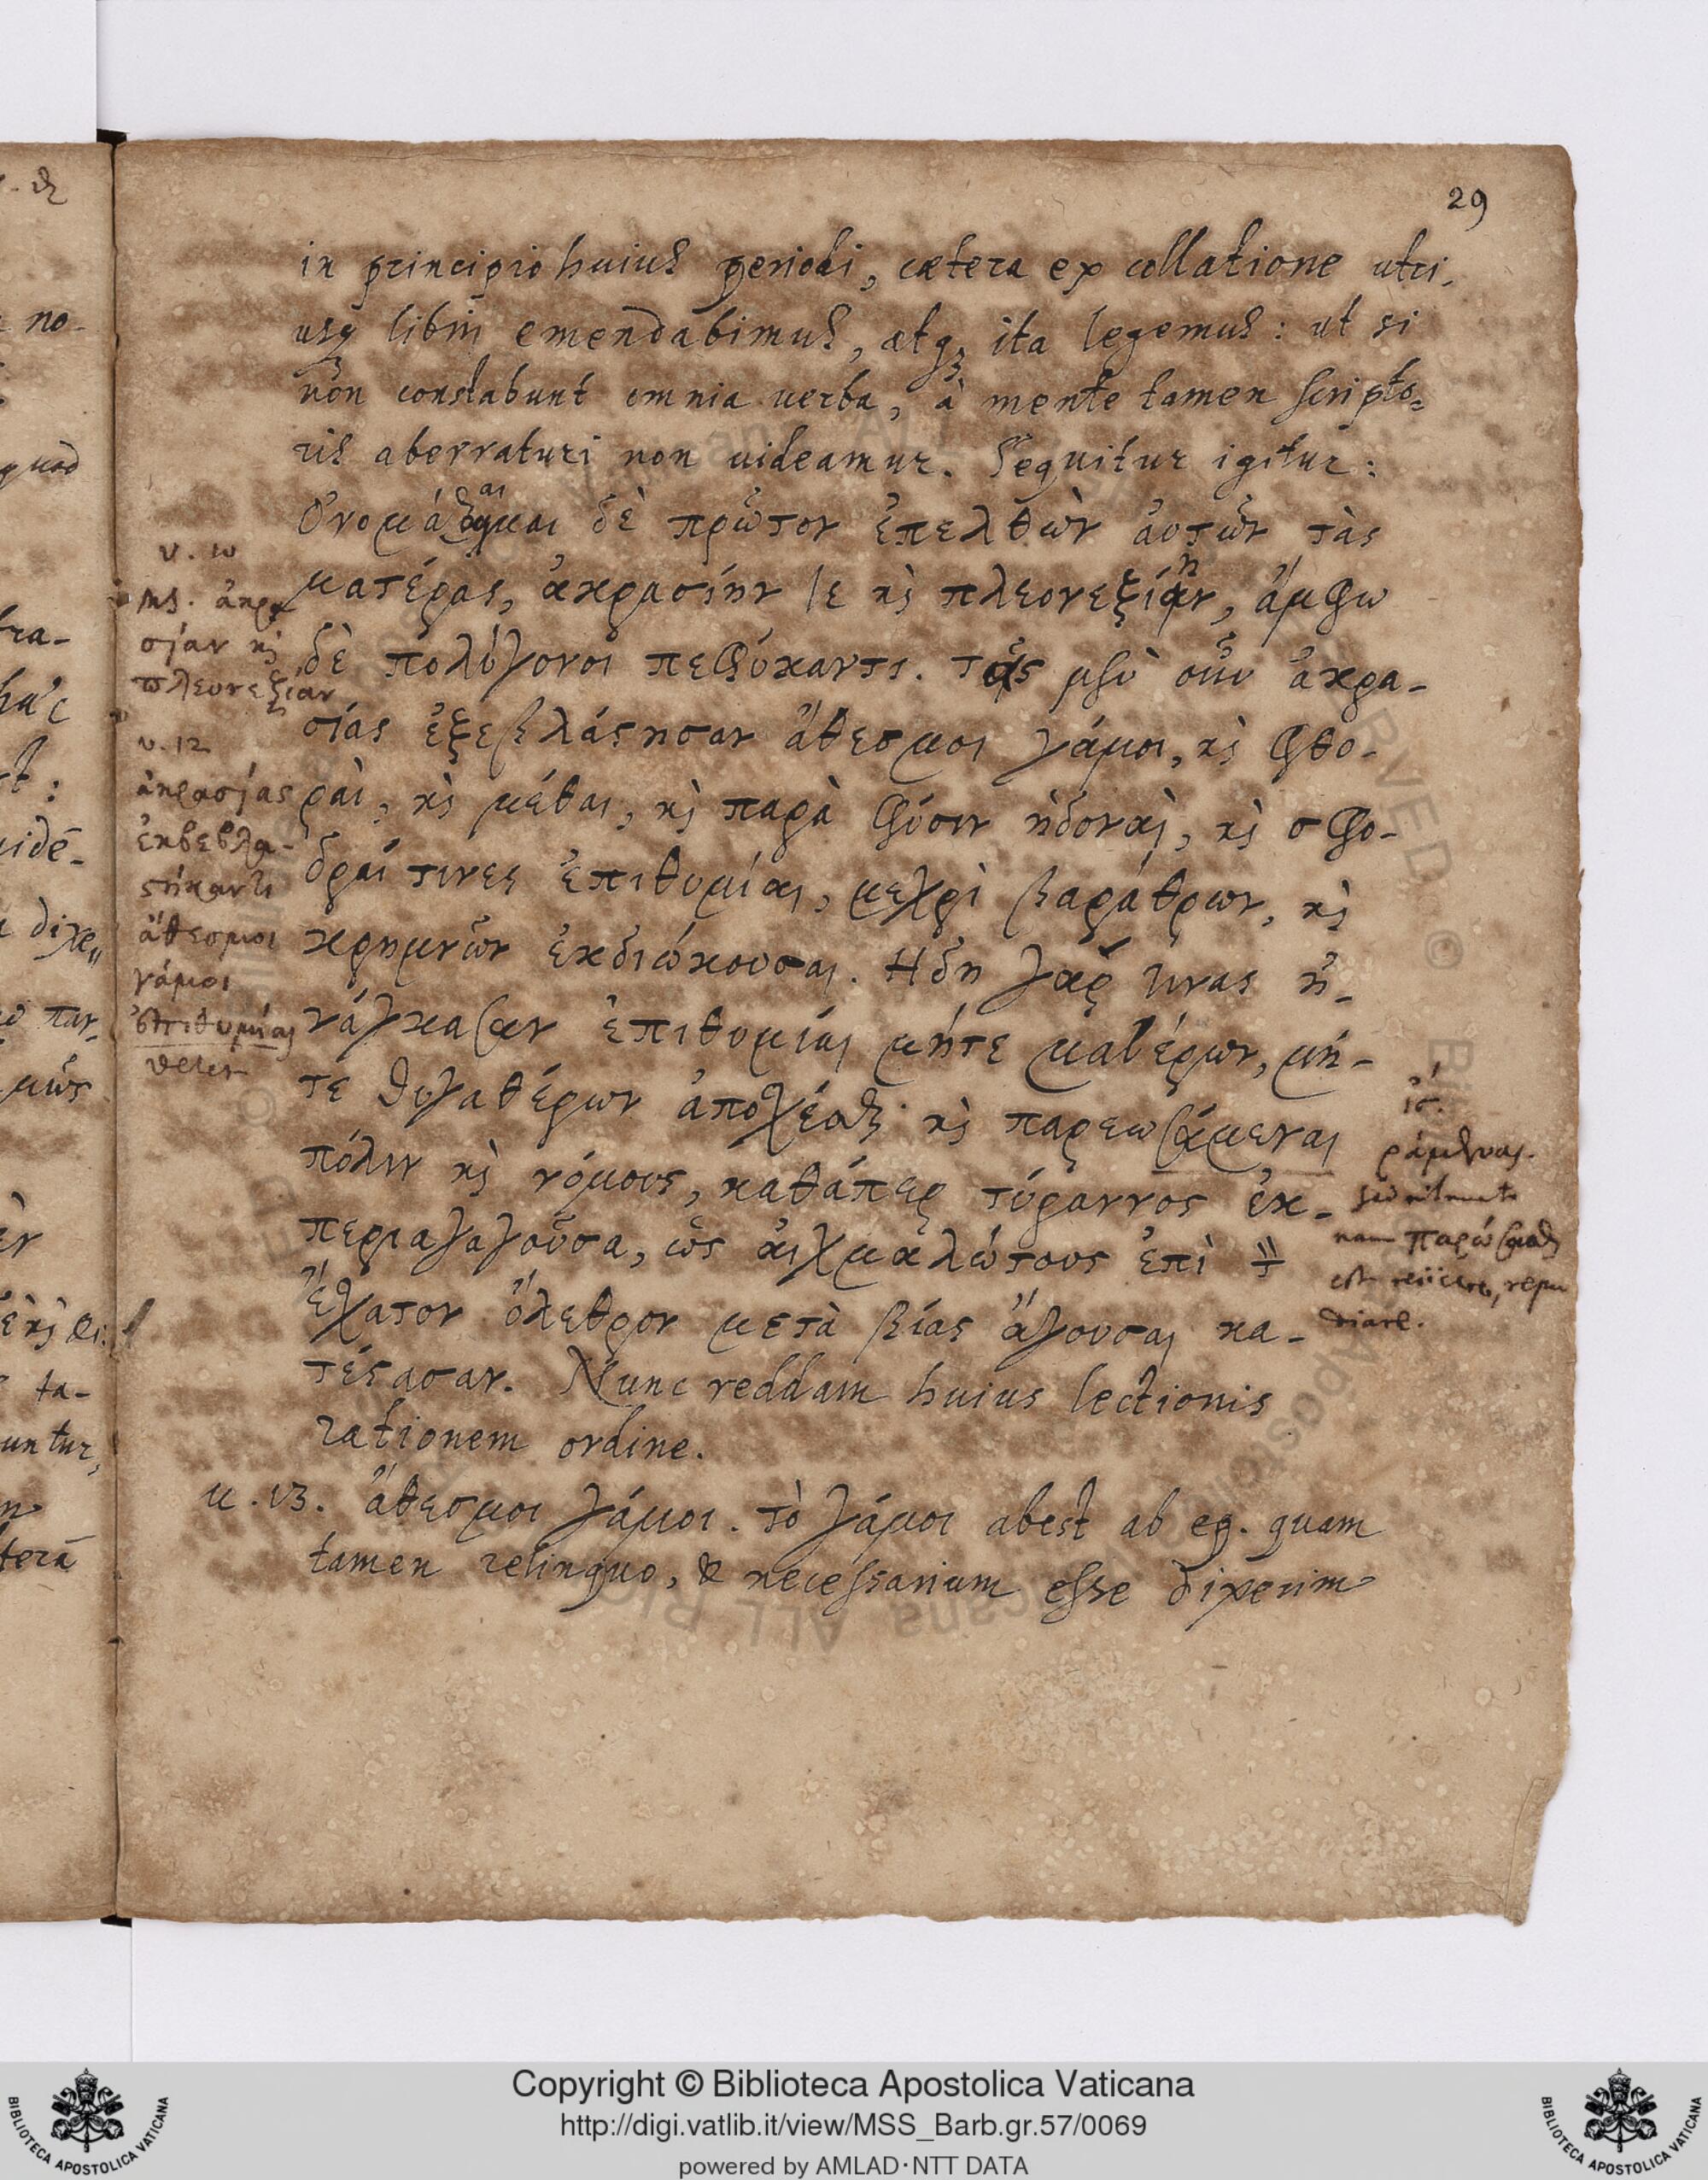 29
in principio huius periodi, cætera ex collatione utri-
usq libri emendabimus, atq; ita legemus: ut si
non constabunt omnia uerba, à mente tamen scripto-
ris aberraturi non uideamur. Sequitur igitur:
δὲ πρῶτον ἐπελθὼν ἀυτῶν τὰς
ματέρας, ἀκρασίην τε κὶ πλεονεξίην, ἄμφω
δὲ πολύγονοι πεφύκαντι. τᾶς μὲν οὖν ἀκρα-
σίας ἐξεβλάστησαν ἄθεσμοι γάμοι, κὶ φθο-
ραὶ, κὶ μέθαι, κὶ παρὰ φύσιν ἡδοναὶ, κὶ σφο-
δραί τινες ἐπιθυμίαι, μεχρὶ βαράθρων, κὶ
κρημνῶν ἐκδιώκουσαι. Ηδη γαρ τινας ἠ-
νάγκασαν ἐπιθυμίαι μήτε ματέρων, μή-
τε θυγατέρων ἀποσχέσθαι· κὶ παρεωσάμεναι
πόλιν κὶ νόμους, καθάπερ τύραννος ἐκ-
περιαγαγοῦσα, ὡς ἀιχμαλώτους ἐπὶ τὸν
ἔσχατον ὄλεθρον μετὰ βίας ἄγουσαι κα-
τέστασαν. Nunc reddam huius lectionis
rationem ordine.
u. 13. ἄθεσμοι γάμοι. τὸ γάμοι abest ab eg. quam
tamen relinquo, & necessarium esse dixerim
v. 10
Ms. ἀκρα
σίαν κὶ
πλεονεξίαν
v. 12
ἀκρασίας
ἐκβεβλα-
στήκαντι
ἄθεσμοι
γάμοι
ἐπιθυμίαι
ράμεναι.
nam παρώσασθαι
est reiicere, repu
diare.
Copyright © Biblioteca Apostolica Vaticana
http://digi.vatlib.it/view/MSS_Barb.gr.57/0069
powered by AMLAD·NTT DATA
BIBLIOTECA APOSTOLICA VATICANA
BIBLIOTECA APOSTOLICA VATICANA